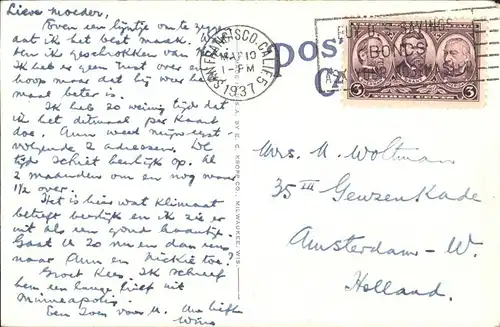 Lieve moeder,
Even een lijntje om te zeggen
dat ik het best maak. Was
ik geschrokken van
Ik heb er geen rust over
hoop maar dat hij weer hele-
maal beter is.
Ik heb zo weinig tijd dat
ik het ditmaal per kaart
doe. Ann weet mijn
volgende 2 adressen. De
tijd schiet heerlijk op. Al
2 maanden om en nog maar
1½ over.
Het is hier wat klimaat
betreft heerlijk en ik zie er
uit als een goud haantje.
Gaat U zo nu en dan eens
naar Ann en Mickie toe?
Groet Kees. Ik schreef
hem een lange brief uit
Minneapolis.
Een zoen voor U. liefh.
Wim
SAN FRANCISCO, CALIF.
MAY 19
1-PM
1937
BUY U.S. SAVINGS
BONDS
3 3
POST
CA
E. C. KROPP CO., MILWAUKEE, WIS.
Mrs. M. Woltman
35 III Geuzenkade
Amsterdam-W.
Holland.